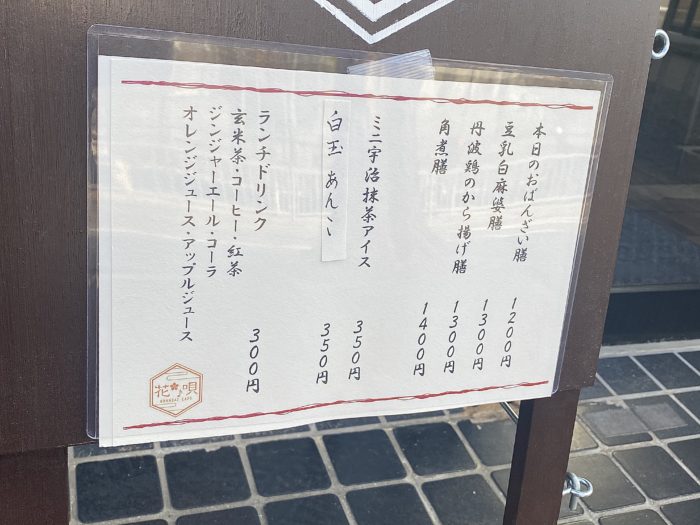 本日のおばんざい膳 1200円
豆乳白麻婆膳 1300円
丹波鶏のから揚げ膳 1300円
角煮膳 1400円
ミニ宇治抹茶アイス 350円
白玉 あんこ 350円
ランチドリンク 300円
玄米茶・コーヒー・紅茶
ジンジャーエール・コーラ
オレンジジュース・アップルジュース
花唄